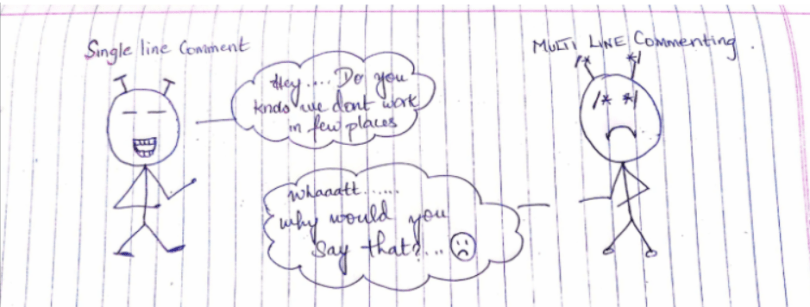 Single line Comment
MULTI LINE Commenting.
/* */
/* */
Hey.... Do you
know we dont work
in few places
Whaaatt......
why would you
say that?...